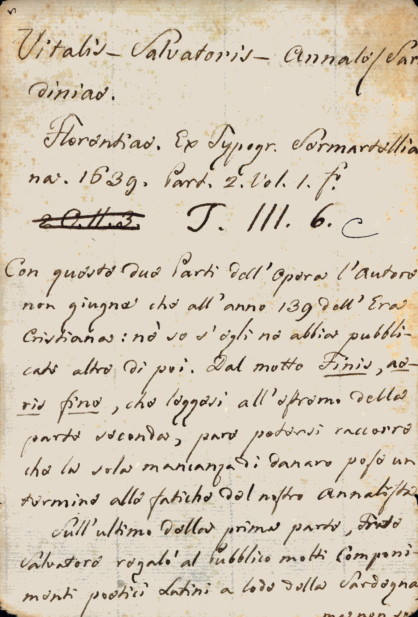 Vitalis - Salvatoris - Annales Sar
diniae.
Florentiae. Ex Typogr. Sermartellia
na. 1639. Part. 2. Vol. 1. fº.
T. III. 6.
Con queste due Parti dell' Opera l'Autore
non giugne che all' anno 139 dell' Era
Cristiana: nè so s'egli ne abbia pubbli-
cate altre di poi. Dal motto Finis, ae-
ris fine, che leggesi all' estremo della
parte seconda, pare potersi raccorre
che la sola mancanza di danaro pose un
termine alle fatiche del nostro Annalista
Sull' ultimo della prima parte, Frate
Salvatore regalò al Pubblico molti Componi
menti poetici Latini a lode della Sardegna